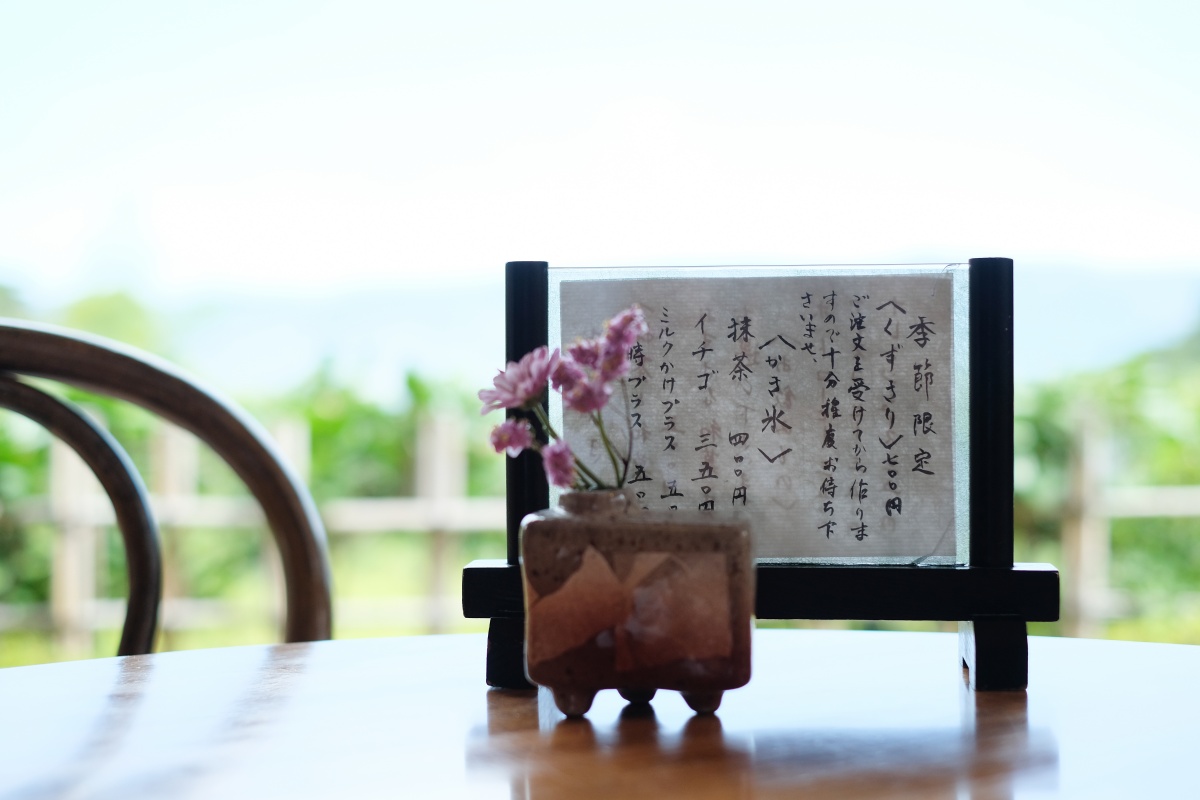 季節限定
〈くずきり〉七〇〇円
ご注文を受けてから作りま
すので十分程度お待ち下
さいませ
〈かき氷〉
抹茶 四〇〇円
イチゴ 三五〇円
ミルクかけプラス 五〇
時プラス 五〇